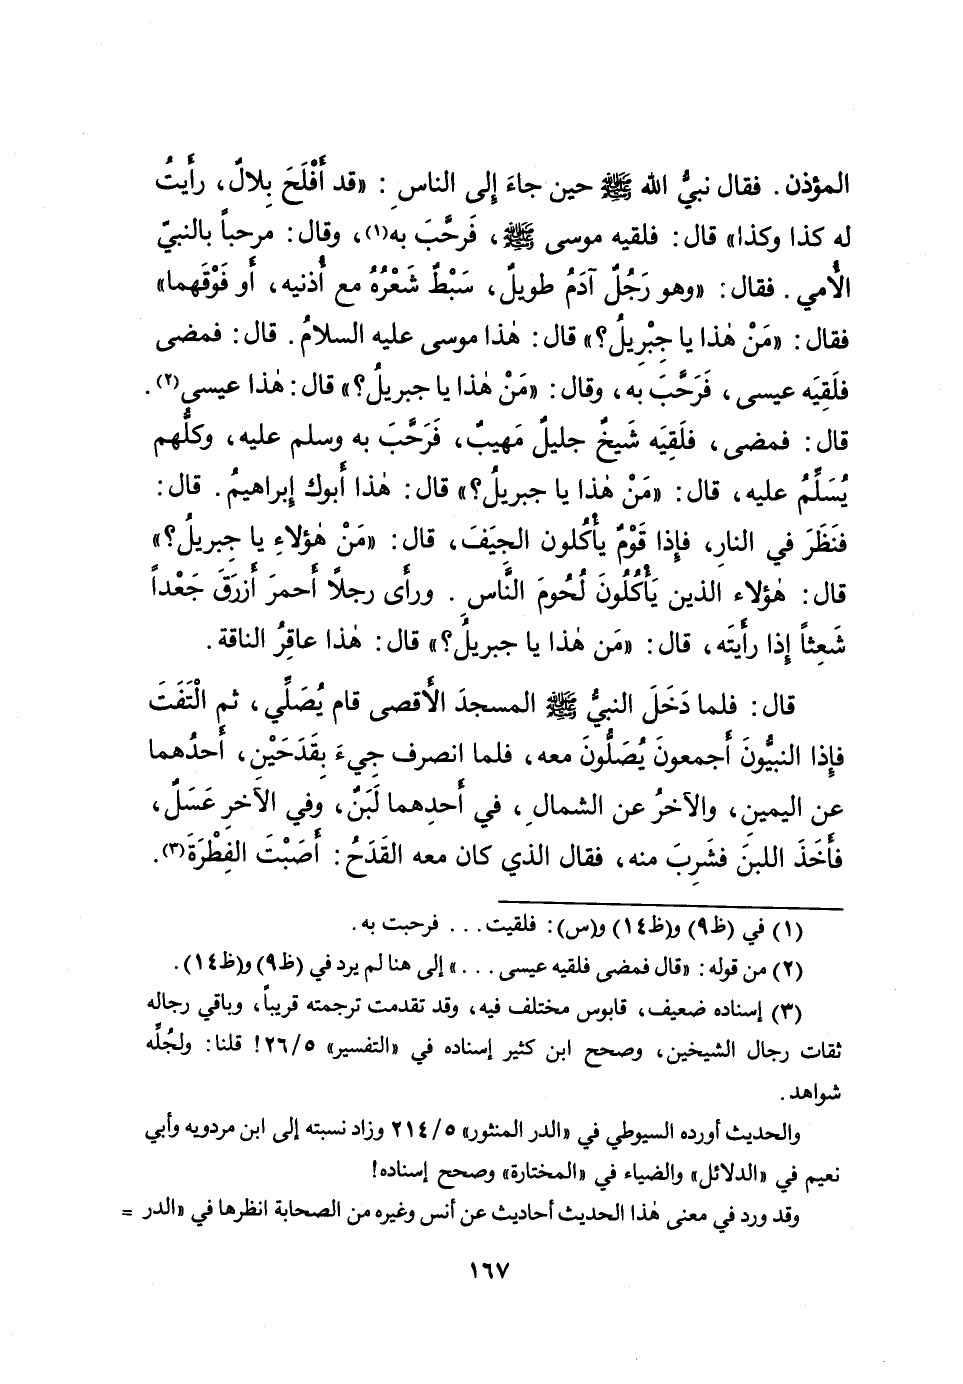 المؤذن. فقال نبيُّ الله ﷺ حين جاءَ إلى الناسِ: «قد أَفْلَحَ بِلالٌ، رأَيتُ
له كذا وكذا» قال: فلقيه موسى ﷺ، فَرحَّبَ به(١)، وقال: مرحباً بالنبيّ
الأُمي. فقال: «وهو رَجُلٌ آدَمُ طويلٌ، سَبْطٌ شَعْرُهُ مع أُذنيه، أَو فَوْقَهما»
فقال: «مَنْ هٰذا يا جِبْرِيلُ؟» قال: هٰذا موسى عليه السلامُ. قال: فمضى
فلَقِيَه عيسى، فَرَحَّبَ به، وقال: «مَنْ هٰذا يا جبريلُ؟» قال: هٰذا عيسى(٢).
قال: فمضى، فلَقِيَه شَيخٌ جليلٌ مَهيبٌ، فَرَحَّبَ به وسلم عليه، وكلُّهم
يُسَلِّمُ عليه، قال: «مَنْ هٰذا يا جبريلُ؟» قال: هٰذا أَبوك إبراهيمُ. قال:
فنَظَرَ في النارِ، فإذا قَوْمٌ يأْكُلون الجِيَفَ، قال: «مَنْ هٰؤلاءِ يا جِبريلُ؟»
قال: هٰؤلاء الذين يَأْكُلُونَ لُحُومَ النَّاسِ. ورأَى رجلاً أَحمرَ أَزرَقَ جَعْداً
شَعِثاً إذا رأَيتَه، قال: «مَن هٰذا يا جبريلُ؟» قال: هٰذا عاقِرُ الناقة.
قال: فلما دَخَلَ النبيُّ ﷺ المسجدَ الأَقصى قام يُصَلِّي، ثم الْتَفَتَ
فإذا النبيُّونَ أَجمعونَ يُصَلُّونَ معه، فلما انصرف جِيءَ بِقَدَحَيْن، أَحدُهما
عن اليمين، والآخرُ عن الشمالِ، في أَحدِهما لَبَنٌ، وفي الآخرِ عَسَلٌ،
فأَخَذَ اللبنَ فشَرِبَ منه، فقال الذي كان معه القَدَحُ: أَصَبْتَ الفِطْرَةَ(٣).
(١) في (ظ٩) و(ظ١٤) و(س): فلقيت... فرحبت به.
(٢) من قوله: «قال فمضى فلقيه عيسى...» إلى هنا لم يرد في (ظ٩) و(ظ١٤).
(٣) إسناده ضعيف، قابوس مختلف فيه، وقد تقدمت ترجمته قريباً، وباقي رجاله
ثقات رجال الشيخين، وصحح ابن كثير إسناده في «التفسير» ٢٦/٥! قلنا: ولجُلِّه
شواهد.
والحديث أورده السيوطي في «الدر المنثور» ٢١٤/٥ وزاد نسبته إلى ابن مردويه وأبي
نعيم في «الدلائل» والضياء في «المختارة» وصحح إسناده!
وقد ورد في معنى هٰذا الحديث أحاديث عن أنس وغيره من الصحابة انظرها في «الدر =
١٦٧